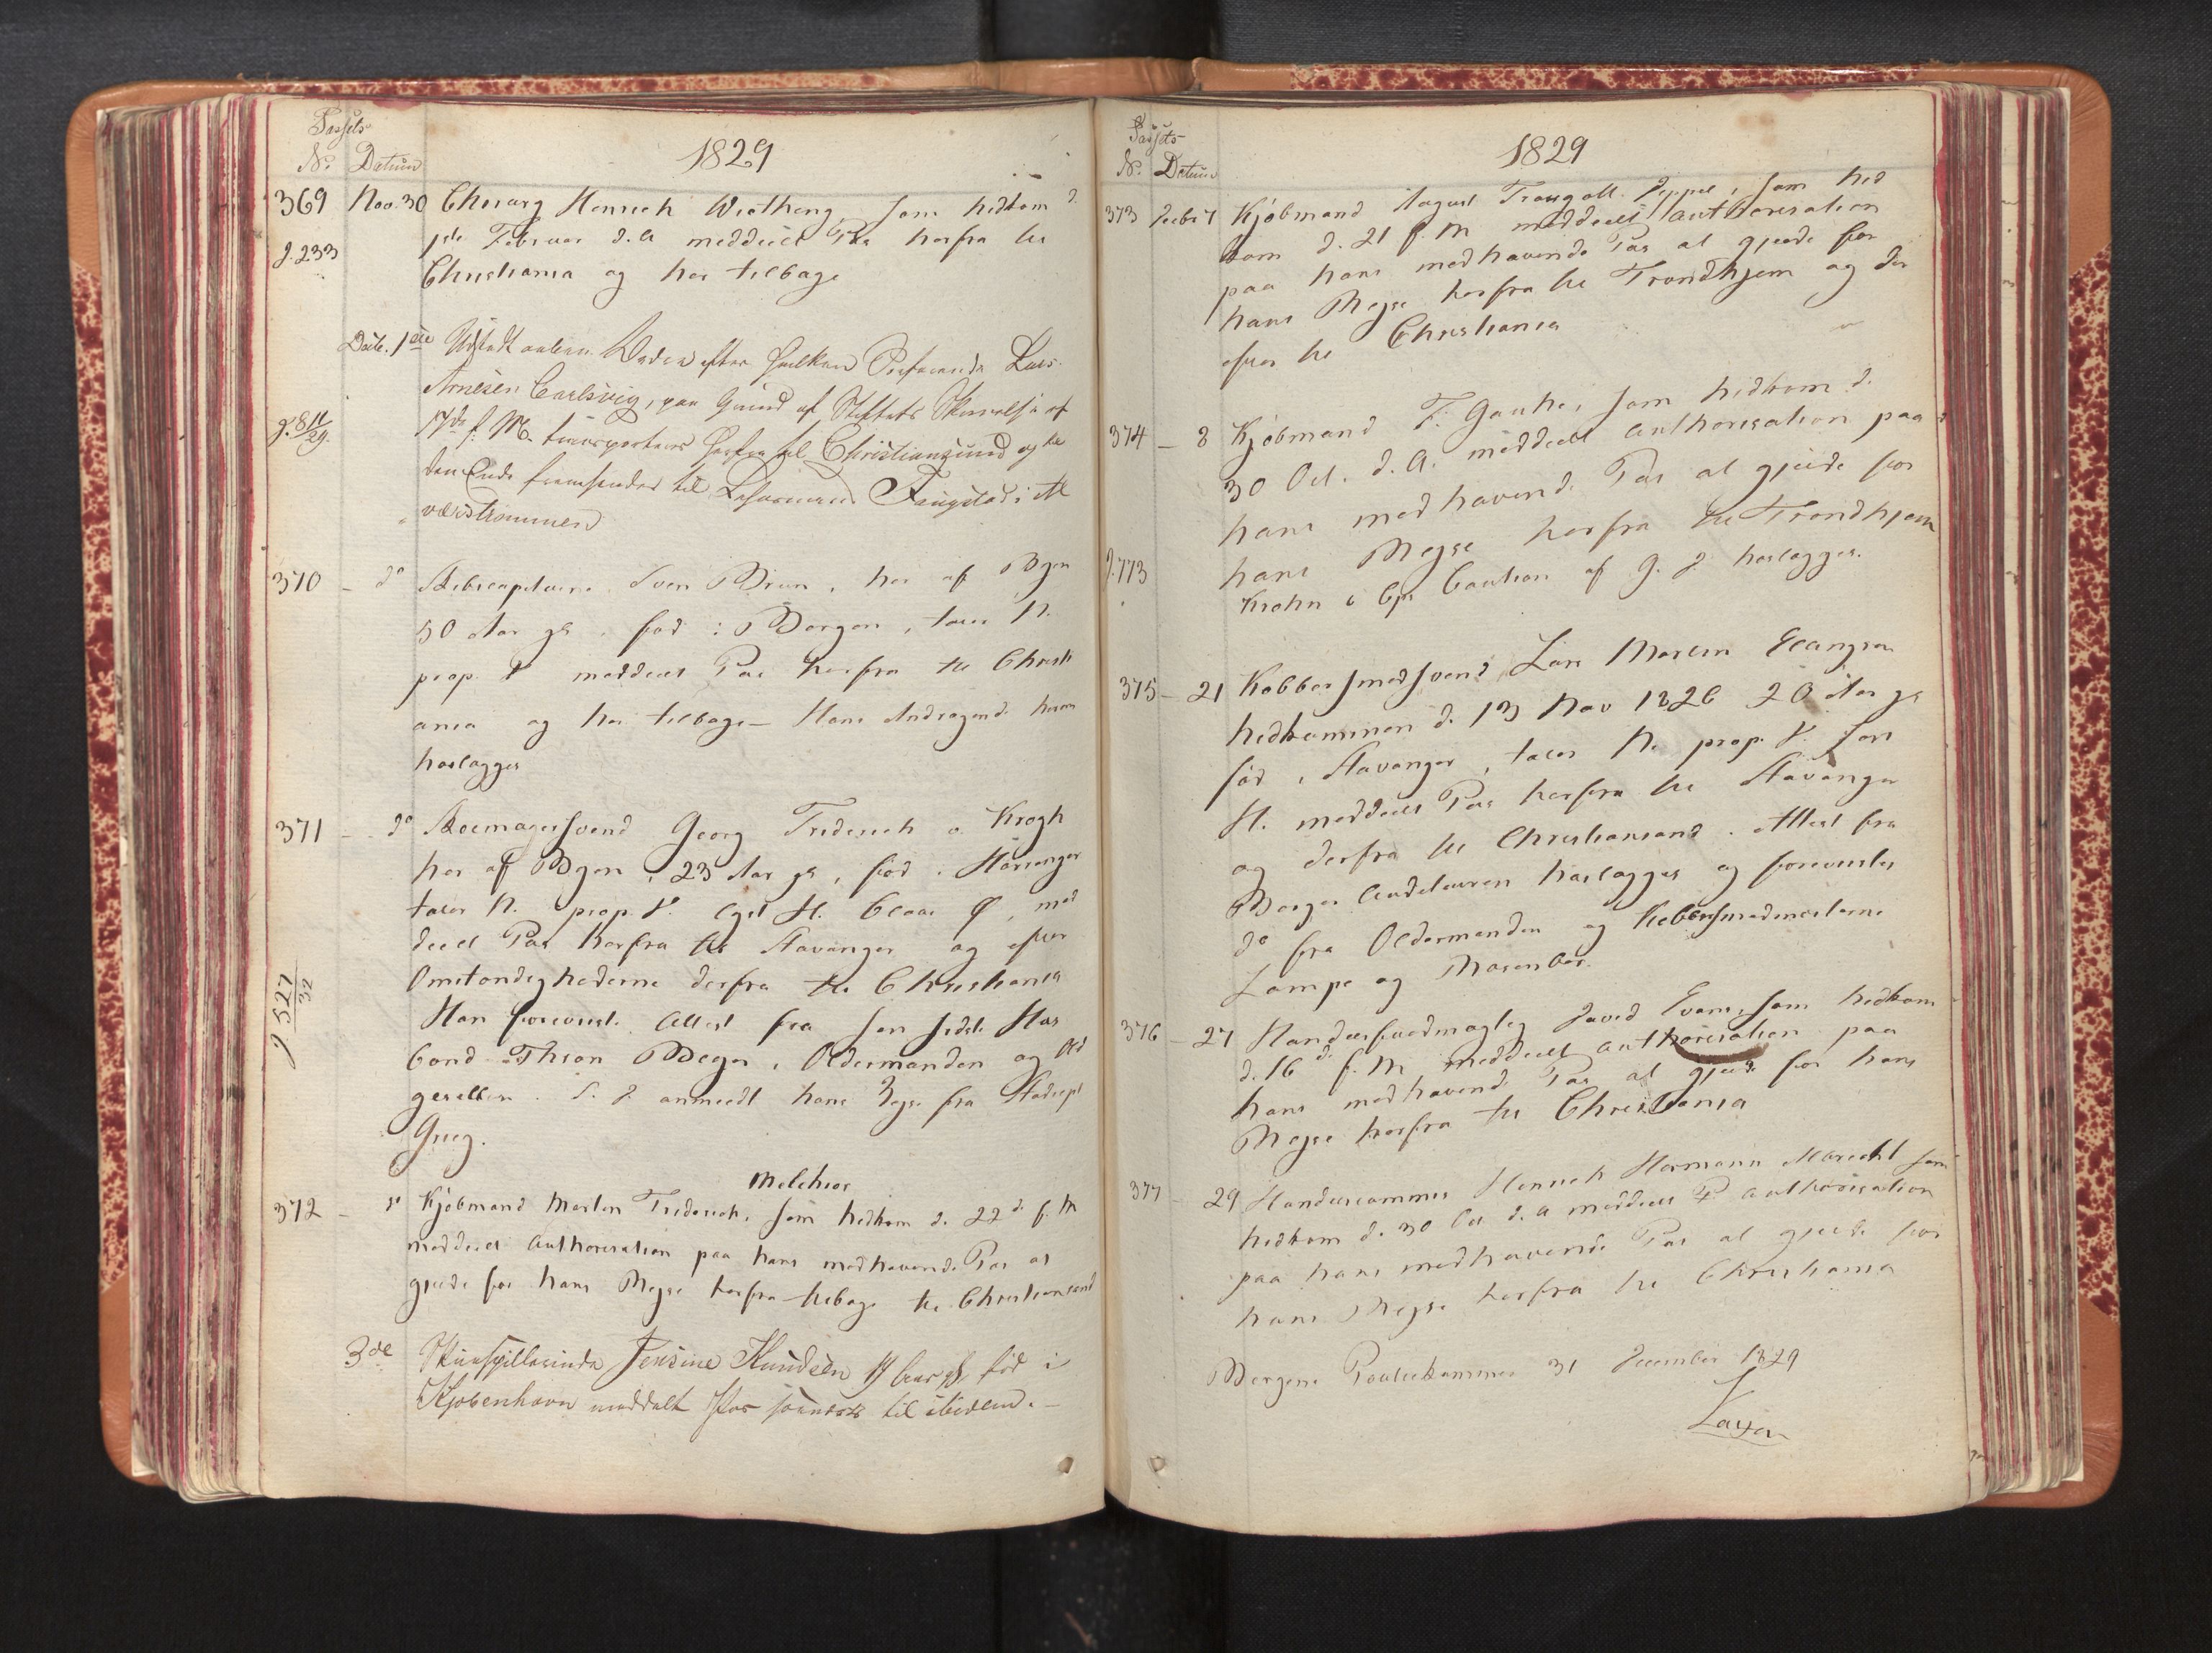 Passets
No. Datum
1829
369 Nov. 30 Chirurg Henrich Wiesheng, som hidkom d.
J. 233 1ste Februar d. A. meddeelt Pas herfra til
Christiania og her tilbage
Decb. 1ste Udstedt aaben Ordre efter hvilken Lars
Arnesen Carlsvig, paa Grund af Stiftets Skrivelse af
J. 811/29 17de f. M. transporteres herfra til Christiansund og til
den Ende fremsendes til Lehnsmand
værstrømmen
370 - do Skibscapitain Sven Brun, her af Byen
50 Aar gl. fød i Bergen, taler N.
prop. meddeelt Pas herfra til Christi
ania og her tilbage - Hans Andragende herom
henlægges
371 - do Skomagersvend Georg Friderich v. Krogh
her af Byen, 23 Aar gl., fød i
taler N. prop. lyst H. blaae med
deelt Pas herfra til Stavanger og efter
J 527/32 Omstændighederne derfra til Christiania
Han foreviste Attest fra sin sidste Hus
bond Thion Beyer, Oldermanden og Old
gesellen. S. J. anmeldt hans Rejse fra Stadscpt
Grieg.
Melchior
372 - do Kjøbmand Morten Friderich, som hidkom d. 22de f. M.
meddeelt Authorisation paa hans medhavende Pas at
gjelde for hans Rejse herfra tilbage til Christiansand
3de Skuespillerinde Jensine Knudsen 17 Aar gl. fød i
Kjøbenhavn meddelt Pas til
Passets
No. Datum
1829
373 Decbr 7 Kjøbmand August Traugott som hid
kom d. 21 f. M. meddeelt Authorisation
paa hans medhavende Pas at gjelde for
hans Rejse herfra til Trondhjem og der
efter til Christiania
374 - 8 Kjøbmand F. Ganhe, som hidkom d.
30 Oct. d. A. meddeelt Authorisation paa
hans medhavende Pas at gjelde for
hans Rejse herfra til Trondhjem
J. 773 Krohn & Cps Caution af G. J. henlægges.
375 - 21 Kobbersmedsvend Lars Martin Ellingsen
hidkommen d. 13 Nov 1826 20 Aar gl
fød i Stavanger, taler N. prop. lyst
H. meddeelt Pas herfra til Stavanger
og derfra til Christiansand. Attest fra
Borger Capitainen henlægges og forevistes
do fra Oldermanden og Kobbersmedmesterne
Lampe og Rosenber.
376 - 27 Handelsfuldmægtig David Evans, som hidkom
d. 16de f. M. meddeelt Authorisation paa
hans medhavende Pas at gjelde for hans
Rejse herfra til Christiania
377 - 29 Handelscommis Henrich Hermann Albrecht som
hidkom d. 30 Oct. d. A. meddeelt Authorisation
paa hans medhavende Pas at gjelde for
hans Rejse herfra til Christiania
Bergens Politiekammer 31 December 1829